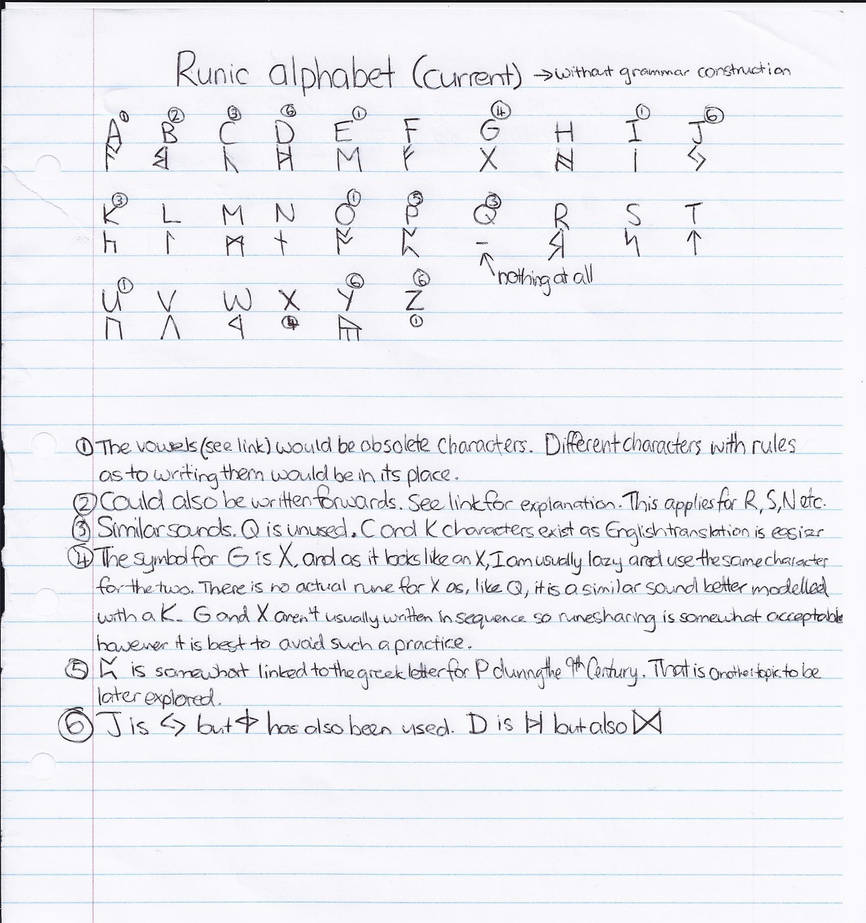 Runic alphabet (current) → without grammar construction
A① B② C③ D⑥ E① F G④ H I① J⑥
ᚨ ᛒ ᚲ ᚺ ᛖ ᚠ X ᚻ ᛁ ᛃ
K③ L M N O① P⑤ Q③ R S T
ᚴ ᛚ ᛗ ᚾ ᚩ ᛈ – ᚱ ᛋ ↑
↑ nothing at all
U① V W X Y⑥ Z⑥
ᚢ Λ ᚹ ④ ᛠ ①
① The vowels (see link) would be obsolete characters. Different characters with rules
as to writing them would be in its place.
② Could also be written forwards. See link for explanation. This applies for R, S, N etc.
③ Similar sounds. Q is unused. C and K characters exist as English translation is easier
④ The symbol for G is X, and as it looks like an X, I am usually lazy and use the same character
for the two. There is no actual rune for X as, like Q, it is a similar sound better modelled
with a K. G and X aren't usually written in sequence so runesharing is somewhat acceptable
however it is best to avoid such a practice.
⑤ ᛈ is somewhat linked to the greek letter for P during the 9th Century. That is another topic to be
later explored.
⑥ J is ᛃ but ᛄ has also been used. D is ᚺ but also ᛞ